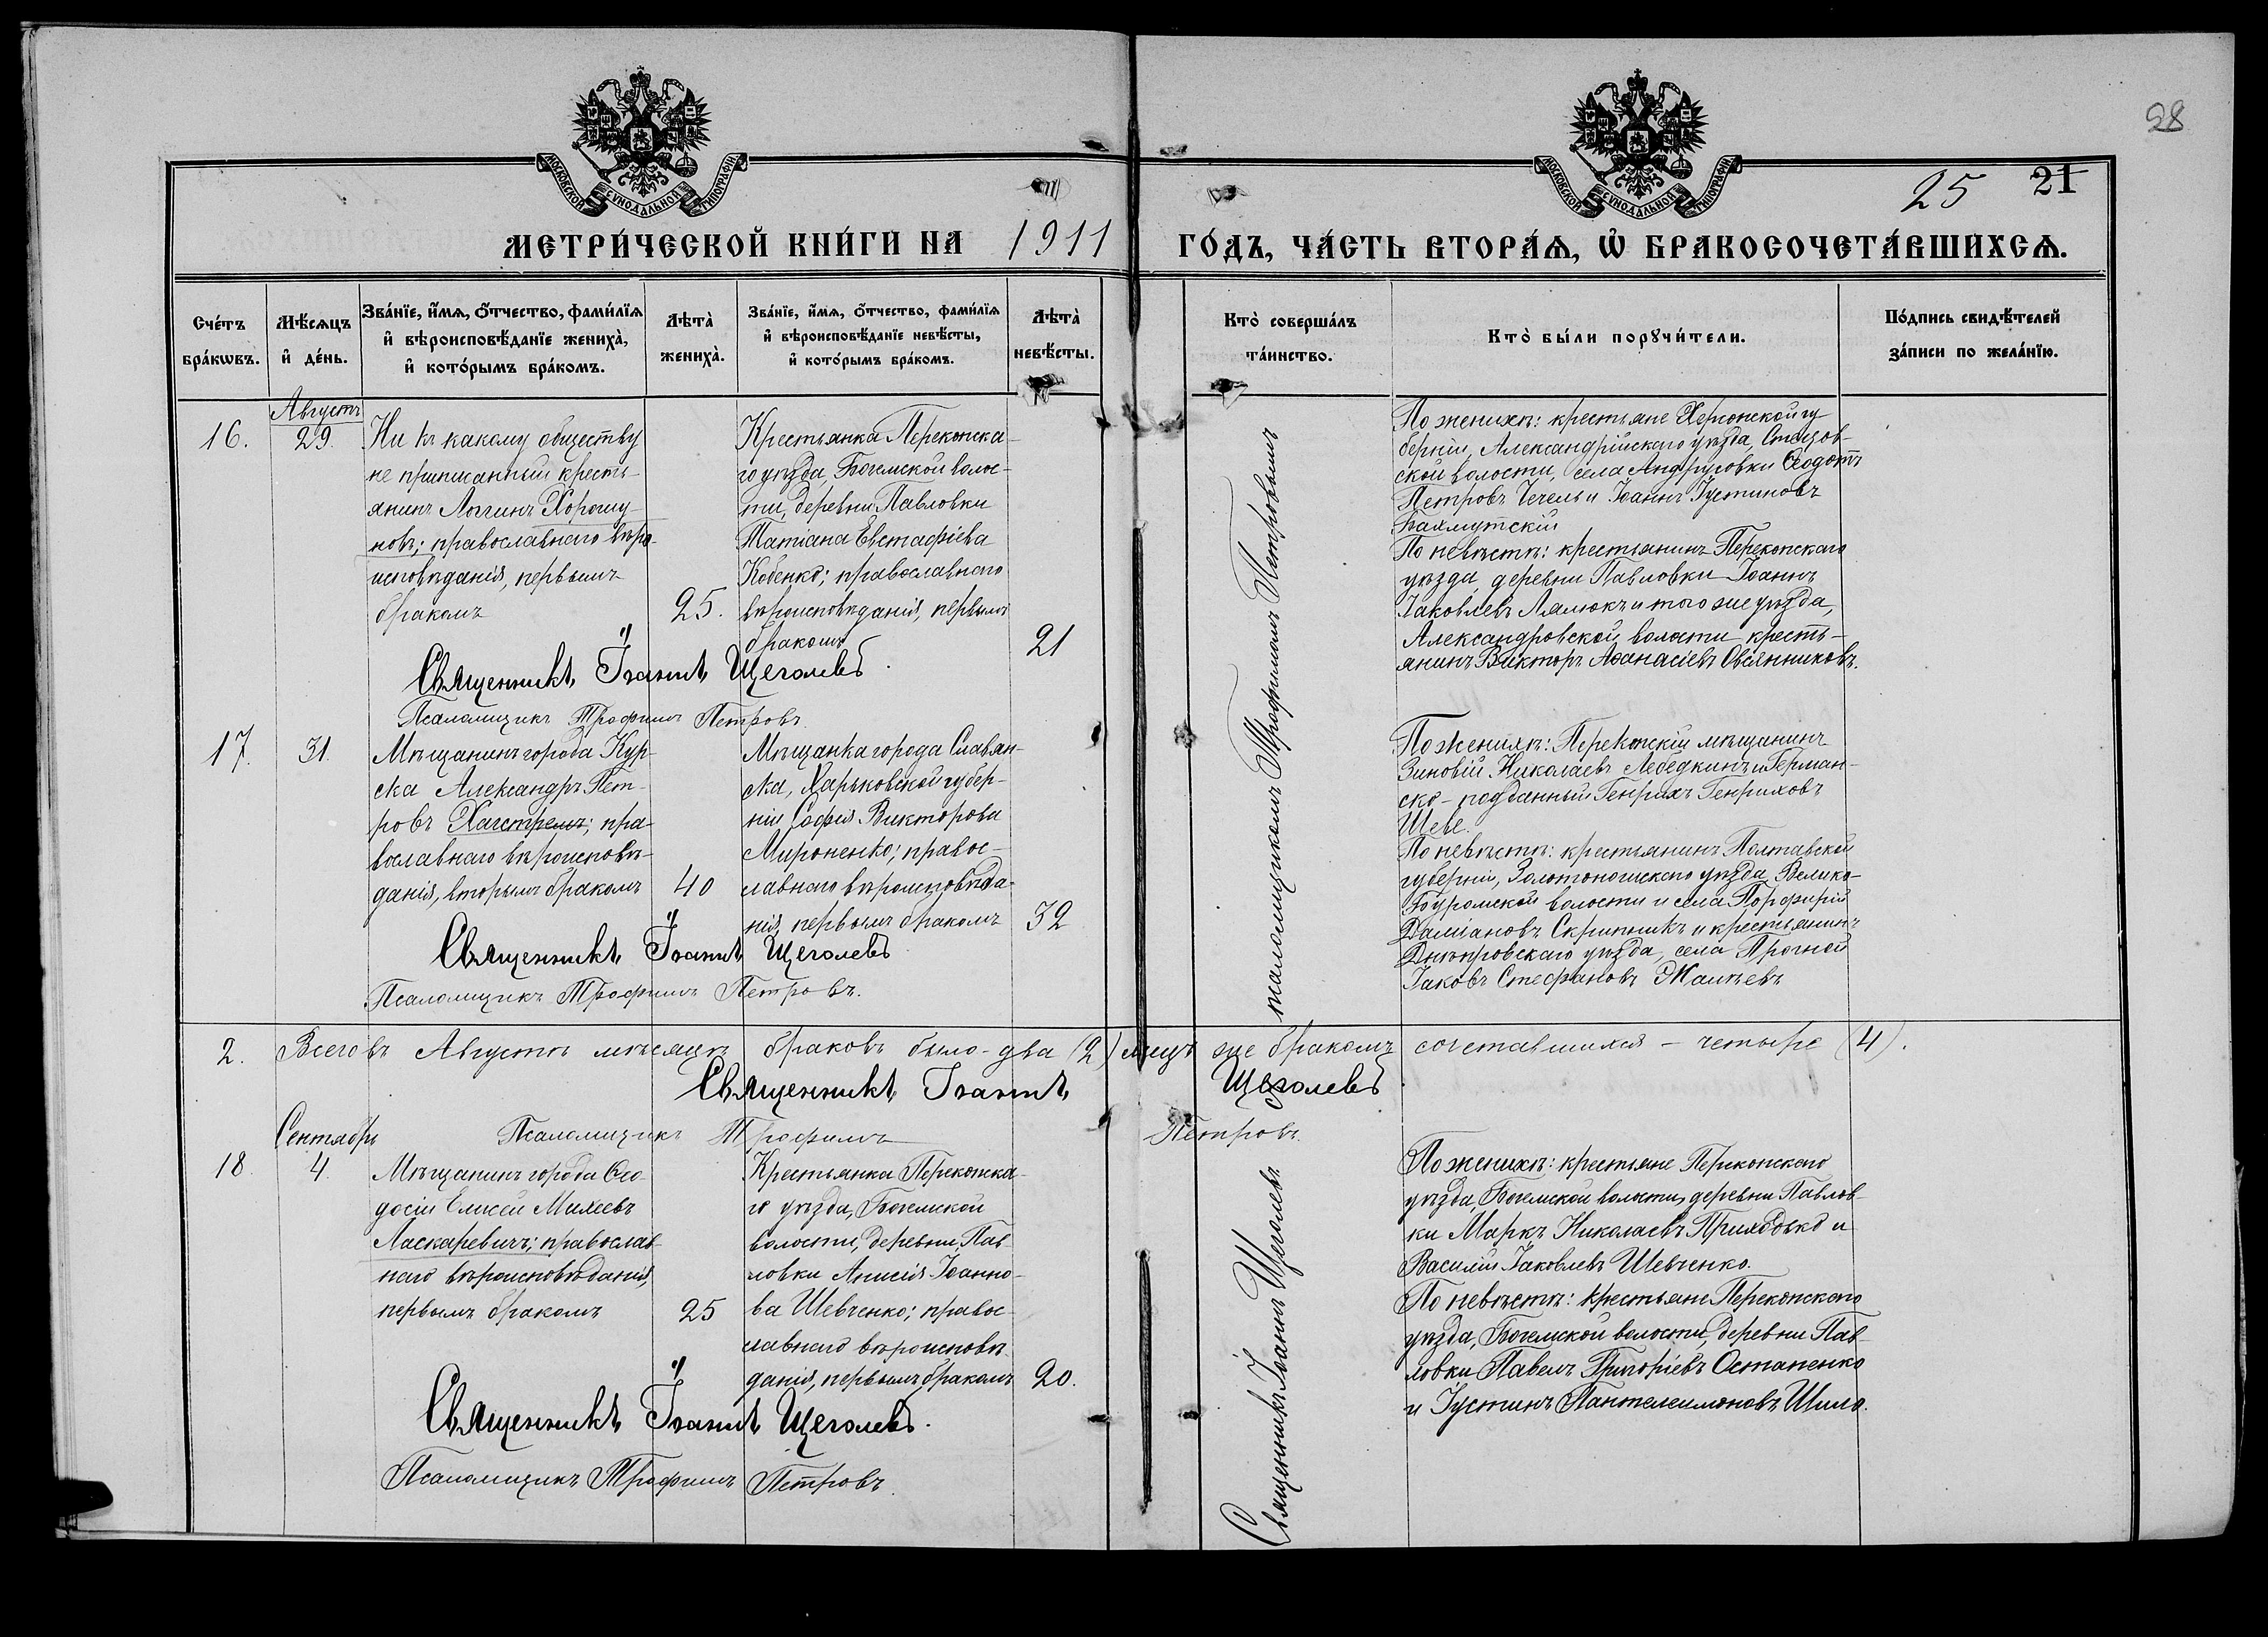 28
25 21
МОСКОВСКОЙ СѴНОДАЛЬНОЙ ТИПОГРАФІИ
МОСКОВСКОЙ СѴНОДАЛЬНОЙ ТИПОГРАФІИ
МЕТРИ́ЧЕСКОЙ КНИ́ГИ НА 1911 ГО́ДЪ, ЧА́СТЬ ВТОРА́Ѧ, Ѡ҆ БРАКОСОЧЕТА́ВШИХСѦ.
Сче́тъ
бра́кѡвъ.
Мѣ́сѧцъ
и҆ де́нь.
Зва́нїе, и҆́мѧ, ѻ҆́тчество, фами́лїѧ
и҆ вѣроисповѣ́данїе жениха̀,
и҆ кото́рымъ бра́комъ.
Лѣта̀
жениха̀.
Зва́нїе, и҆́мѧ, ѻ҆́тчество, фами́лїѧ
и҆ вѣроисповѣ́данїе невѣ́сты,
и҆ кото́рымъ бра́комъ.
Лѣта̀
невѣ́сты.
Кто̀ соверша́лъ
та́инство.
Кто̀ бы́ли порꙋчи́тели.
По́дпись свидѣ́телей
за́писи по жела́нїю.
16.
Августъ
29.
Ни къ какому обществу
не приписанный кресть-
янинъ Логгинъ Хорошу-
новъ; православнаго вѣро-
исповѣданія, первымъ
бракомъ
25.
Крестьянка Перекопска-
го уѣзда, Богемской волос-
ти, деревни Павловки
Татіана Евстафіева
Кобенко; православнаго
вѣроисповѣданія, первымъ
бракомъ
21
По женихѣ: крестьяне Херсонской гу
берніи, Александрійскаго уѣзда,
ской волости, села Андрусовки Ѳеодотъ
Петровъ Чечель и Іоаннъ Іустиновъ
Бахмутскій
По невѣстѣ: крестьянинъ Перекопскаго
уѣзда, деревни Павловки Іоаннъ
Іаковлевъ Лялюкъ и того же уѣзда,
Александровской волости кресть-
янинъ Викторъ Аѳанасіевъ Овсянниковъ.
Священникъ Іоаннъ Щеголевъ.
Псаломщикъ Трофимъ Петровъ.
17.
31.
Мѣщанинъ города Кур-
ска Александръ Пет-
ровъ Хагстремъ; пра-
вославнаго вѣроисповѣ-
данія, вторымъ бракомъ
40
Мѣщанка города Славян-
ска, Харьковской губер-
ніи Софія Викторова
Мироненко; правос-
лавнаго вѣроисповѣда-
нія, первымъ бракомъ
32
По женихѣ: Перекопскій мѣщанинъ
Зиновій Николаевъ Лебедкинъ и Герман-
ско-подданный Генрихъ Генриховъ
Шеве.
По невѣстѣ: крестьянинъ Полтавской
губерніи, Золотоношскаго уѣзда, Велико-
Бурромской волости и села Порфирій
Даміановъ Скрипникъ и крестьянинъ
Днѣпровскаго уѣзда, села Прогной
Іаковъ Стефановъ
Священникъ Іоаннъ Щеголевъ
Псаломщикъ Трофимъ Петровъ.
2. Всего въ Августѣ мѣсяцѣ браковъ было - два (2) лицъ же бракомъ сочетавшихся - четыре (4).
Священникъ Іоаннъ Щеголевъ
Псаломщикъ Трофимъ Петровъ.
18
Сентябрь
4.
Мѣщанинъ города Ѳео-
досіи Елисей Михеевъ
Ласкаревичъ; православ-
наго вѣроисповѣданія,
первымъ бракомъ
25
Крестьянка Перекопска-
го уѣзда, Богемской
волости, деревни Пав-
ловки Анисія Іоанно-
ва Шевченко; правос-
лавнаго вѣроисповѣ-
данія, первымъ бракомъ
20.
По женихѣ: крестьяне Перекопскаго
уѣзда, Богемской волости, деревни Павлов-
ки Маркъ Николаевъ Приходько и
Василій Іаковлевъ Шевченко.
По невѣстѣ: крестьяне Перекопскаго
уѣзда, Богемской волости, деревни Пав-
ловки Павелъ Григоріевъ Остапенко
и Іустинъ Пантелеимоновъ Шило.
Священникъ Іоаннъ Щеголевъ.
Псаломщикъ Трофимъ Петровъ.
Священникъ Іоаннъ Щеголевъ съ псаломщикомъ Трофимомъ Петровымъ